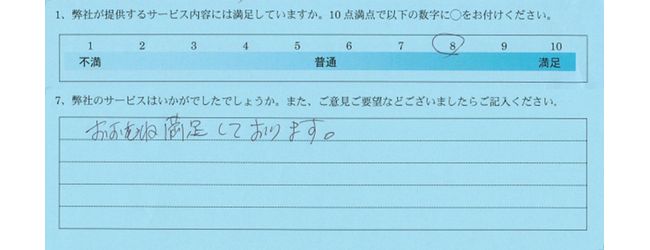 1、弊社が提供するサービス内容には満足していますか。10点満点で以下の数字に○をお付けください。
1 2 3 4 5 6 7 8 9 10
不満 普通 満足
7、弊社のサービスはいかがでしたでしょうか。また、ご意見ご要望などございましたらご記入ください。
おおむね満足しております。